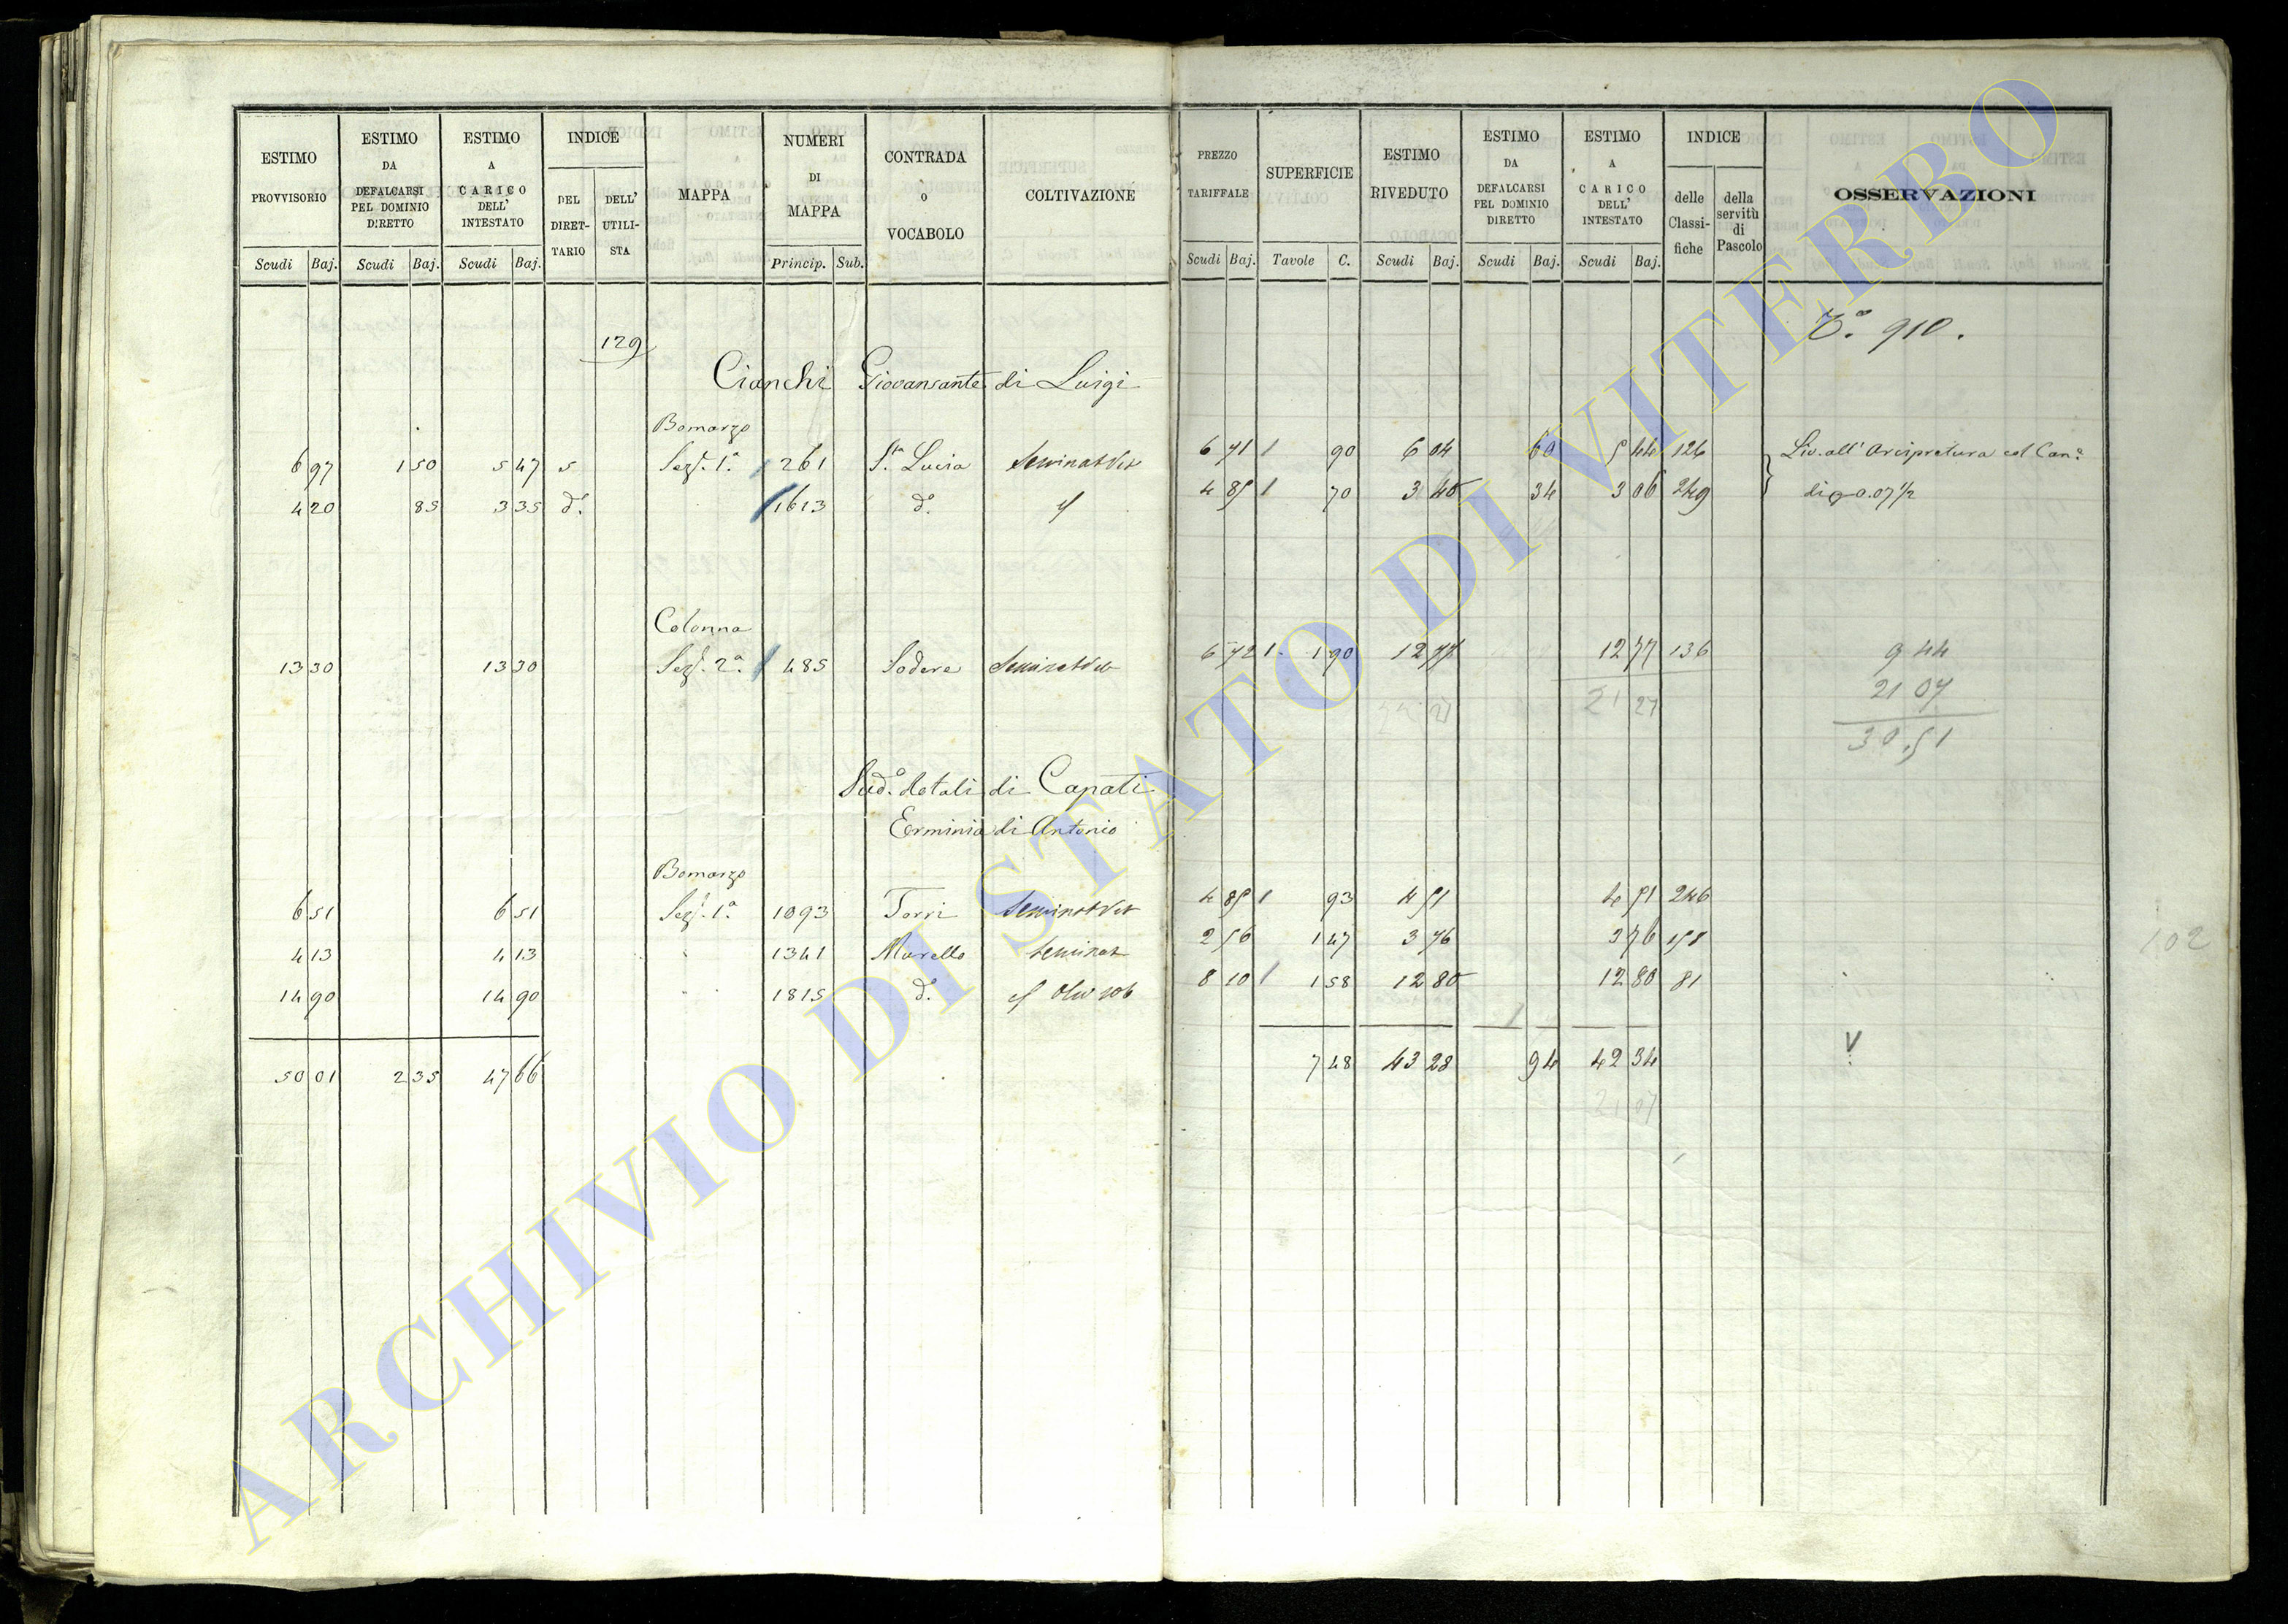 ESTIMO PROVVISORIO Scudi Baj.
ESTIMO DA DEFALCARSI PEL DOMINIO DIRETTO Scudi Baj.
ESTIMO A CARICO DELL' INTESTATO Scudi Baj.
INDICE DEL DIRET-TARIO DELL' UTILI-STA
MAPPA
NUMERI DI MAPPA Princip. Sub.
CONTRADA O VOCABOLO
COLTIVAZIONE
PREZZO TARIFFALE Scudi Baj.
SUPERFICIE Tavole C.
ESTIMO RIVEDUTO Scudi Baj.
ESTIMO DA DEFALCARSI PEL DOMINIO DIRETTO Scudi Baj.
ESTIMO A CARICO DELL' INTESTATO Scudi Baj.
INDICE delle Classi-fiche della servitù di Pascolo
OSSERVAZIONI
910.
129
Cianchi Giovansante di Luigi
Bomarzo
6 97 1 50 5 47 5 Sez. 1ª 261 S.ta Lucia Seminat Vit 6 71 1 90 6 04 60 5 44 126 Liv. all' Arcipretura col Can.e
4 20 85 3 35 d.º 1613 d.º 4 85 1 70 3 40 34 3 06 249 di 0.07 ½
Colonna
13 30 13 30 Sez. 2ª 485 Sodere Seminat Vit 6 72 1 1 90 12 77 12 77 136 9 44
21 27 21 07
30.51
Sud.º dotali di Capati
Erminia di Antonio
Bomarzo
6 51 6 51 Sez. 1ª 1093 Torri Seminat Vit 4 85 1 93 4 51 4 51 246
4 13 4 13 1341 Morello Seminat 2 56 1 47 3 76 3 76 158
14 90 14 90 1815 d.º 8 10 1 1 58 12 80 12 80 81
50 01 2 35 47 66 7 48 43 28 94 42 34
21 07
102
ARCHIVIO DI STATO DI VITERBO